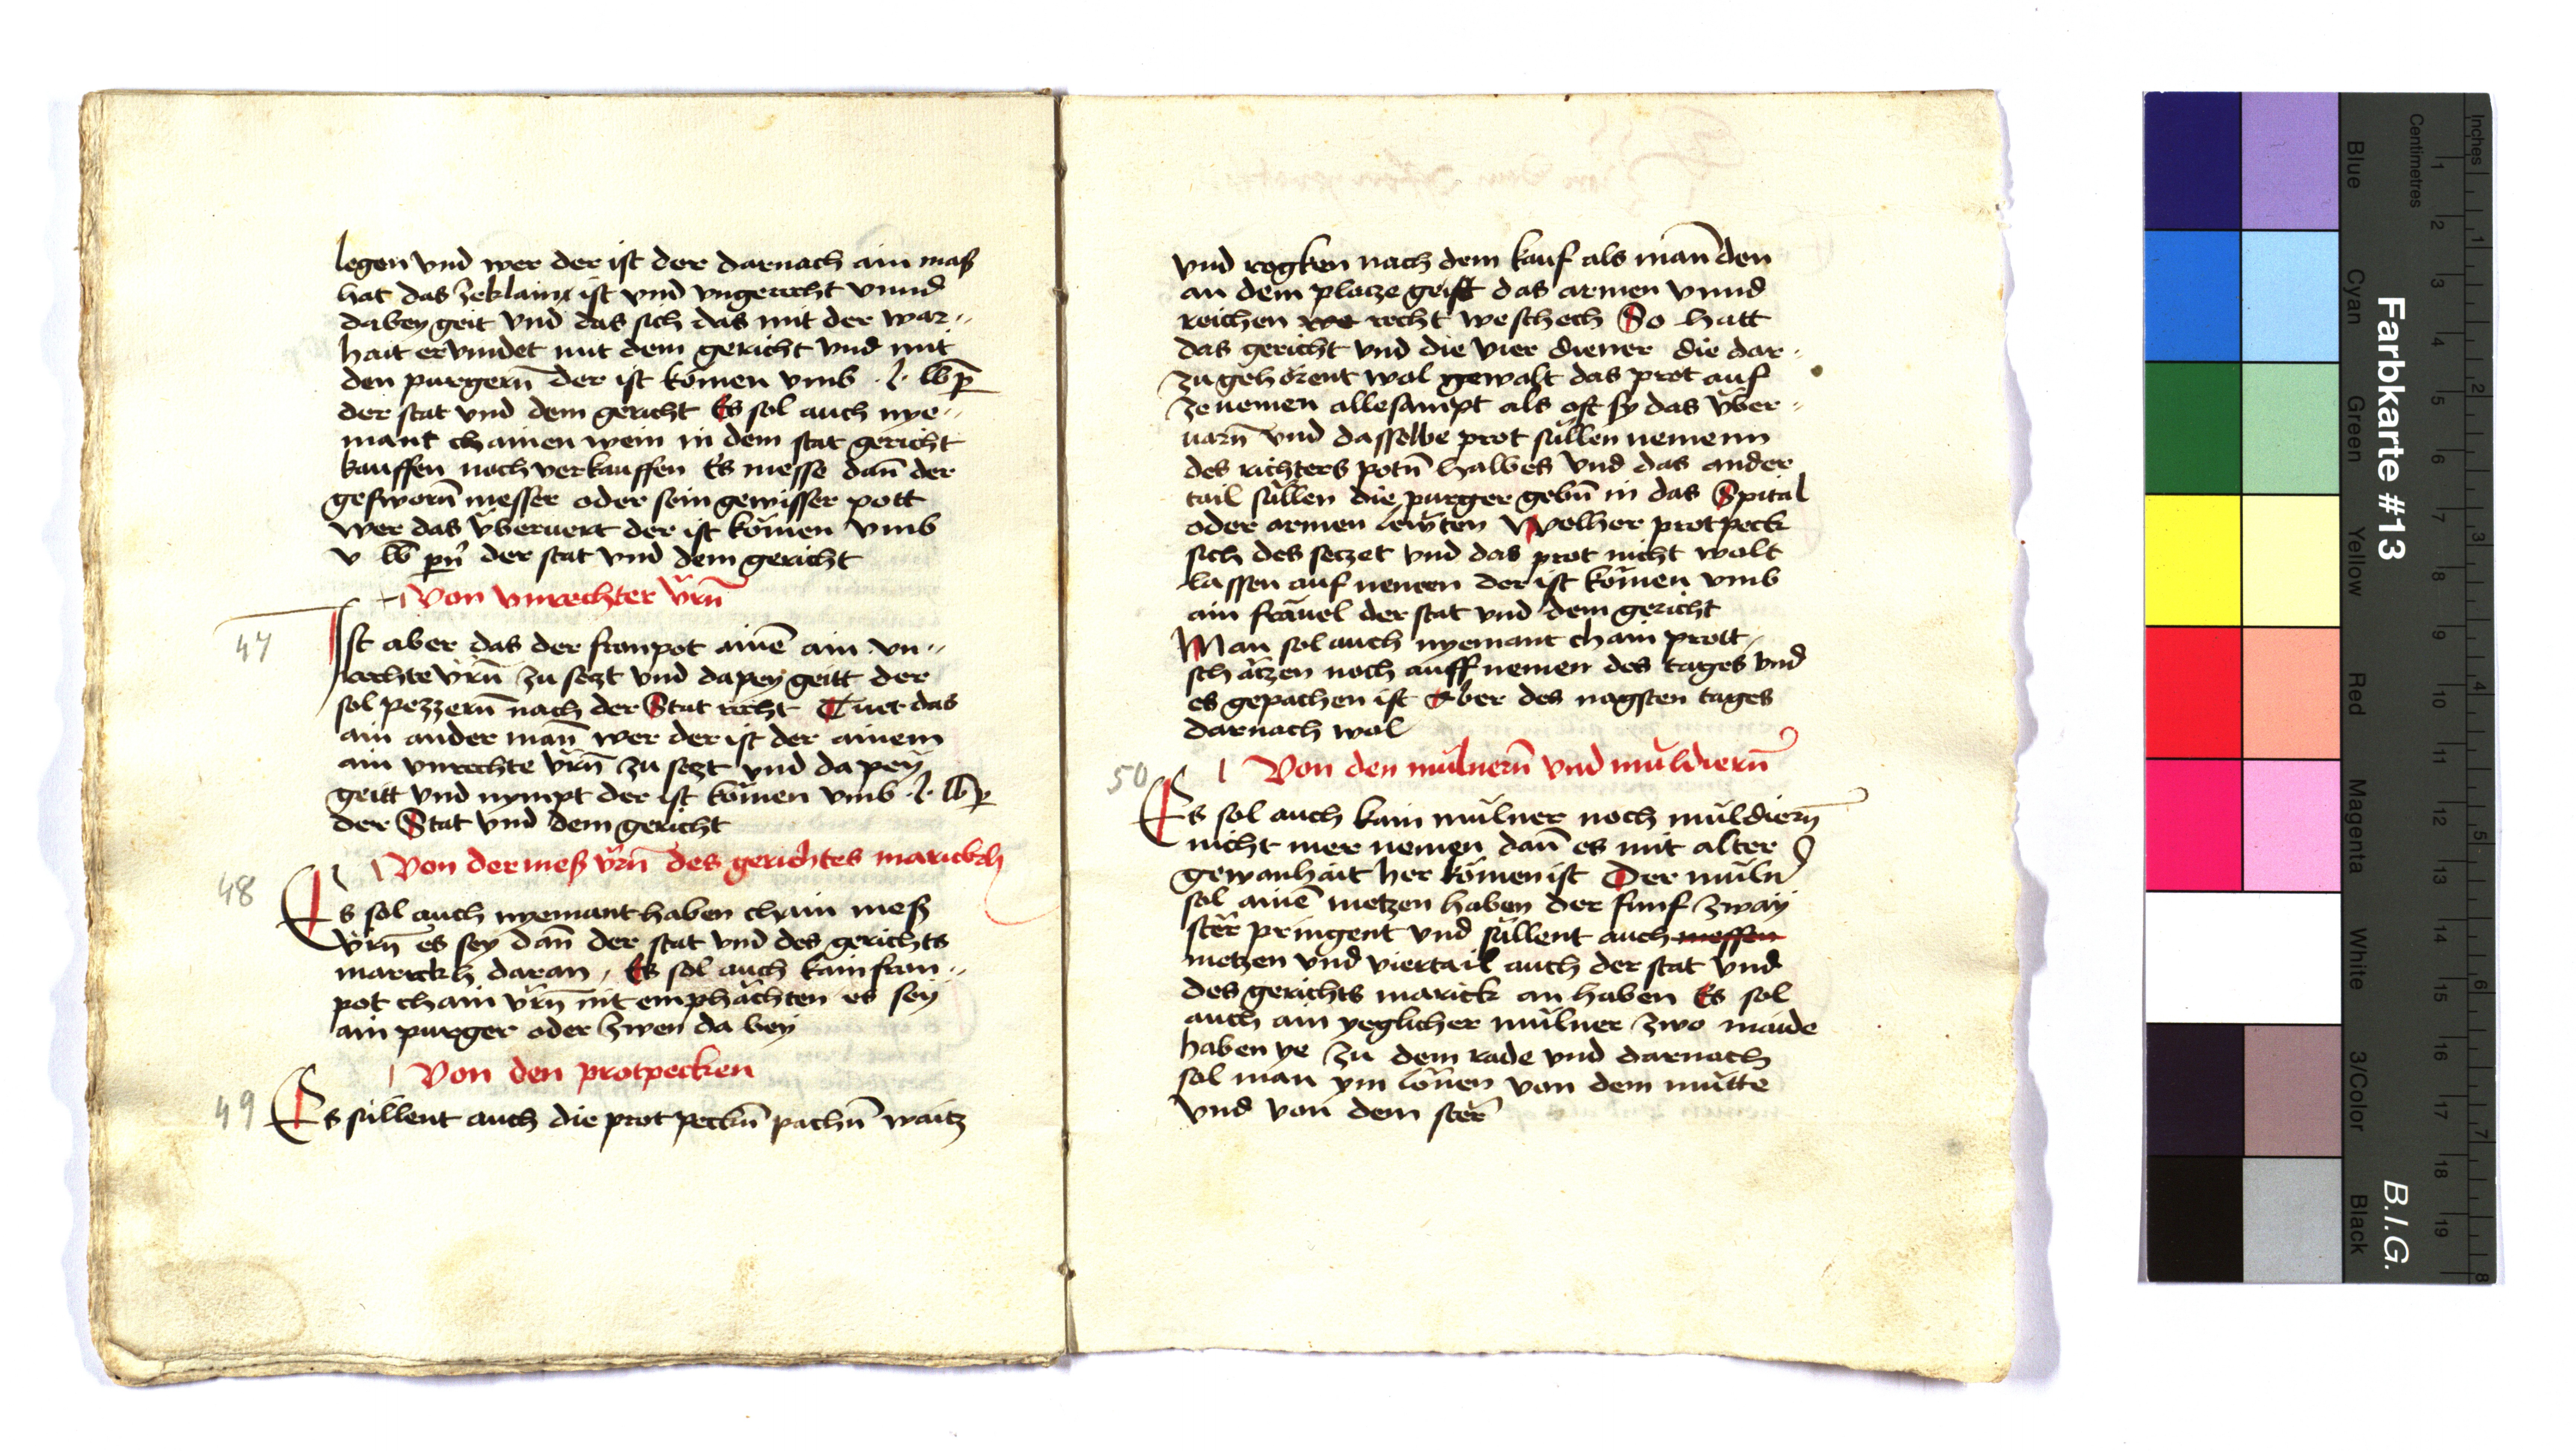 legen vnd wer der ist der darnach ain maß
hat das zeklain ist vnd vngerecht vnnd
dabey geit vnd das sich das mit der war„
hait ervindet mit dem gericht vnd mit
den purgern̄ der ist kömen vmb ·l· lb p̄
der stat vnd dem gericht Es sol auch nye„
mant chainen wein in dem stat gericht
kauffen noch verkauffen Es messe dan̄ der
gesworn̄ messer oder sein gewisser pott
wer das vberuert der ist kömen vmb
v lb pn̄ der stat vnd dem gericht
Von vnrechter vrn̄
47
Ist aber das der fronpot ainē ain vn„
rechte vrn̄ zu sezt vnd dapey geitt der
sol pezzern̄ nach der Stat recht Tuet das
ain ander man̄ wer der ist der ainem
ain vnrechte vrn̄ zu sezt vnd da pey
geitt vnd nympt der ist kömen vmb ·l· lb p
der Stat vnd dem gericht
Von der meß vrn̄ des gerichtes marickch
48
Es sol auch nyemant haben chain meß
vrn̄ es sey dan̄ der stat vnd des gerichts
marickh daran / Es sol auch kain fron„
pot chain vrn̄ nit emphächten es sey
ain purger oder zwen da bey
Von den protpecken
49
Es süllent auch die prot peckn̄ pachn̄ waitz
vnd rogken nach dem kauf als man̄ den
an dem placze geist das armen vnnd
reichen we recht weschech So hatt
das gericht vnd die vier diener die dar„
zu gehörent wol gewalt das prot auf
ze nemen allesampt als oft sy das vber„
uarn̄ vnd dasselbe prot süllen nemenn
des richters potn̄ halbes vnd das ander
tail süllen die purger gebn̄ in das Spital
oder armen lewten Welher protpeck
sich des seczet vnd das prot nicht wolt
lassen auf nemen der ist kömen vmb
ain fräuel der stat vnd dem gericht
Man sol auch nyemant chain prott
schätzen noch auff nemen des tages vnd
es gepachen ist Aber des nagsten tages
darnach wol
Von den mulnern̄ vnd muldiern̄
50
Es sol auch kain mulner noch muldiern̄
nicht mer nemen dan̄ es mit alter
gewanhait her kömen ist Der muln̄
sol ainē metzen haben der funf zway
ster pringent vnd süllent auch messen
metzen vnd viertail auch der stat vnd
des gerichts marick an haben Es sol
auch ain yeglicher mulner zwo maide
haben ye zu dem rade vnd darnach
sol man ym lonen von dem mutte
vnd von dem ster
Farbkarte #13
B.I.G.
Blue
Cyan
Green
Yellow
Red
Magenta
White
3/Color
Black
Centimetres
1 2 3 4 5 6 7 8 9 10 11 12 13 14 15 16 17 18 19
Inches
1 2 3 4 5 6 7 8